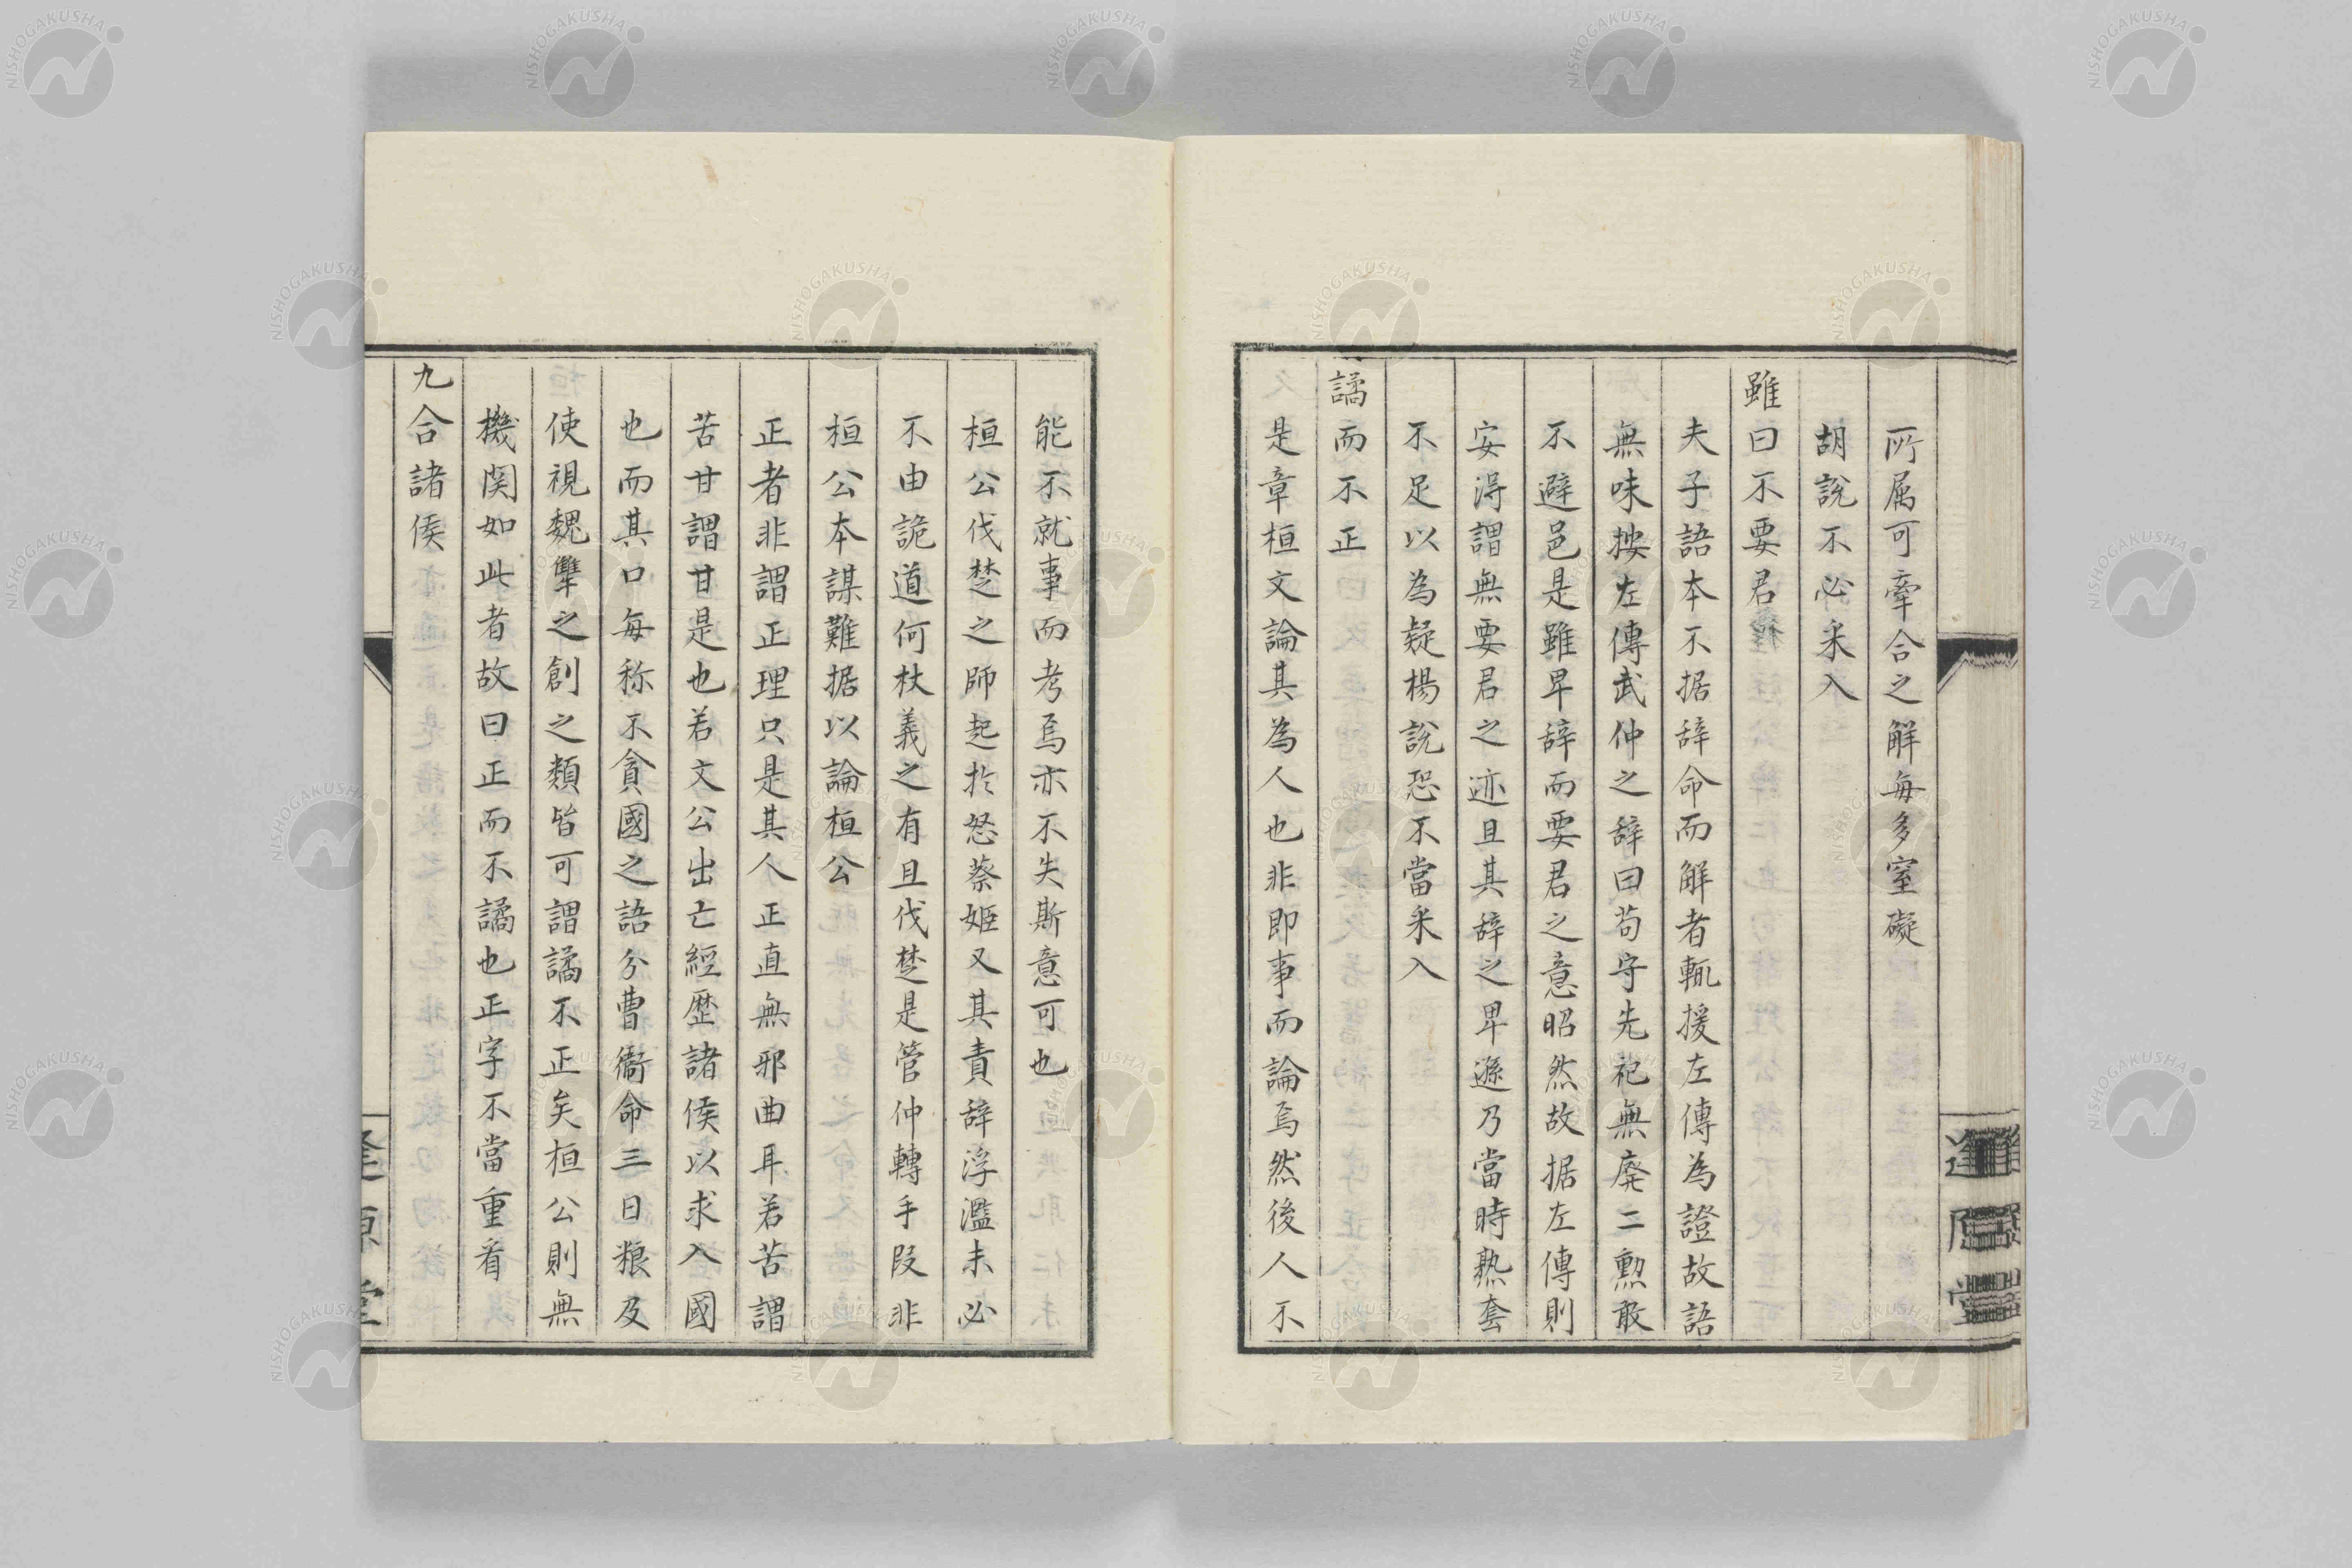 所属可牽合之解每多窒礙
胡説不必采入
雖曰不要君
夫子語本不据辞命而解者輒援左傳為證故語
無味按左傳武仲之辞曰苟守先祀無廃二勲敢
不避邑是雖卑辞而要君之意昭然故据左傳則
安得謂無要君之迹且其辞之卑遜乃當時熟套
不足以為疑楊説恐不當采入
譎而不正
是章桓文論其為人也非即事而論焉然後人不
能不就事而考焉亦不失斯意可也
桓公伐楚之師起於怒蔡姬又其責辞浮濫未必
不由詭道何杖義之有且伐楚是管仲轉手段非
桓公本謀難据以論桓公
正者非謂正理只是其人正直無邪曲耳若苦謂
苦甘謂甘是也若文公出亡經歴諸侯以求入國
也而其口毎称不貪國之語分曹衞命三日粮及
使視魏犨之創之類皆可謂譎不正矣桓公則無
機関如此者故曰正而不譎也正字不當重看
九合諸侯
逢原堂
NISHOGAKUSHA